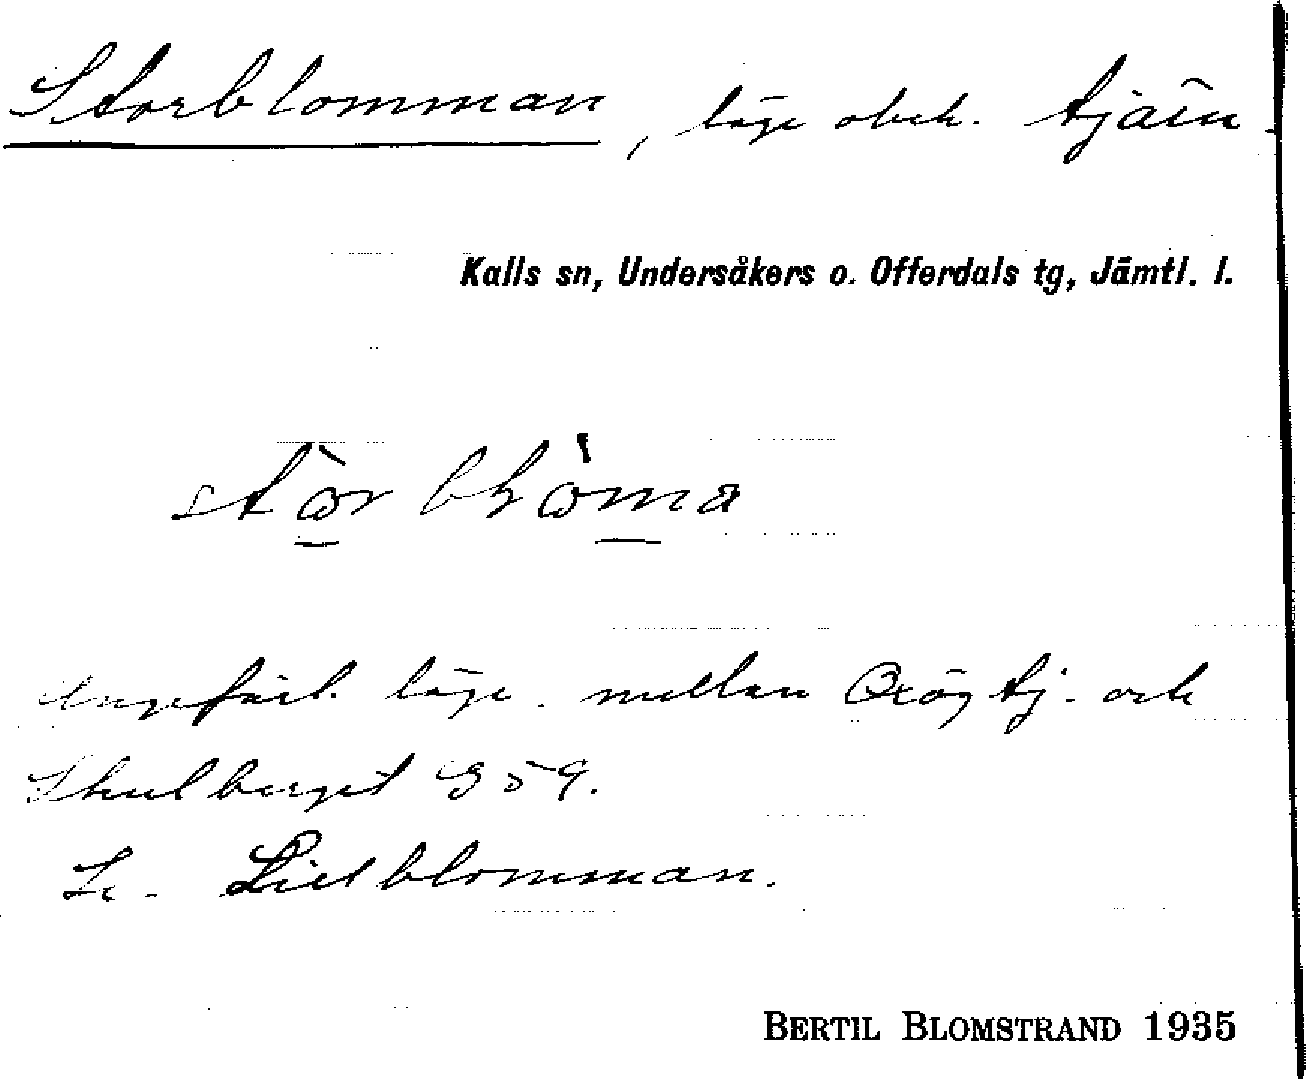 Storblomman, läge obek. tjärn.
Kalls sn, Undersåkers o. Offerdals tg, Jämtl. l.
stòr blòma
Ungefärl. läge mellan Oxögtj. och
Skulberget 959.
Se Lillblomman.
BERTIL BLOMSTRAND 1935